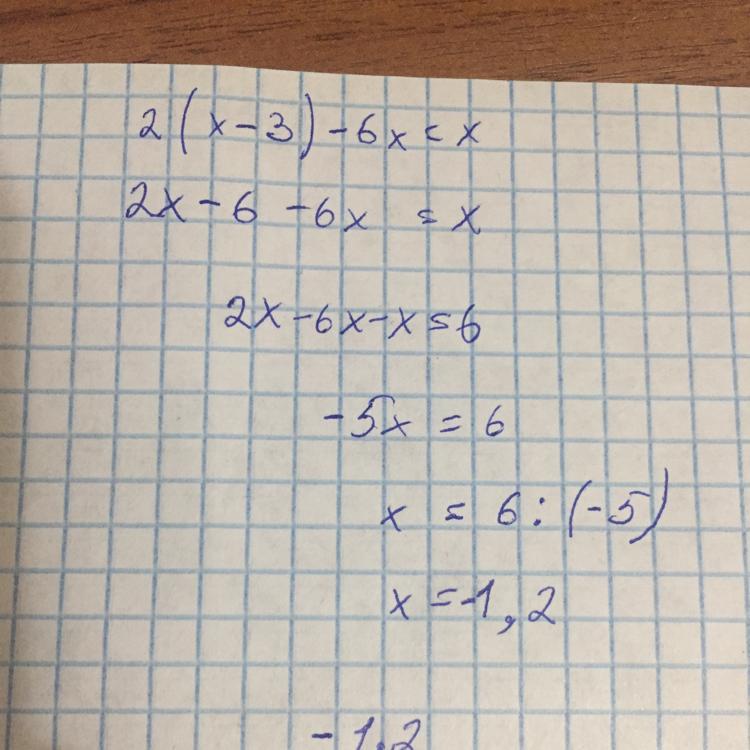 2(x-3)-6x=x
2x-6-6x=x
2x-6x-x=6
-5x=6
x=6:(-5)
x=-1,2
-1,2